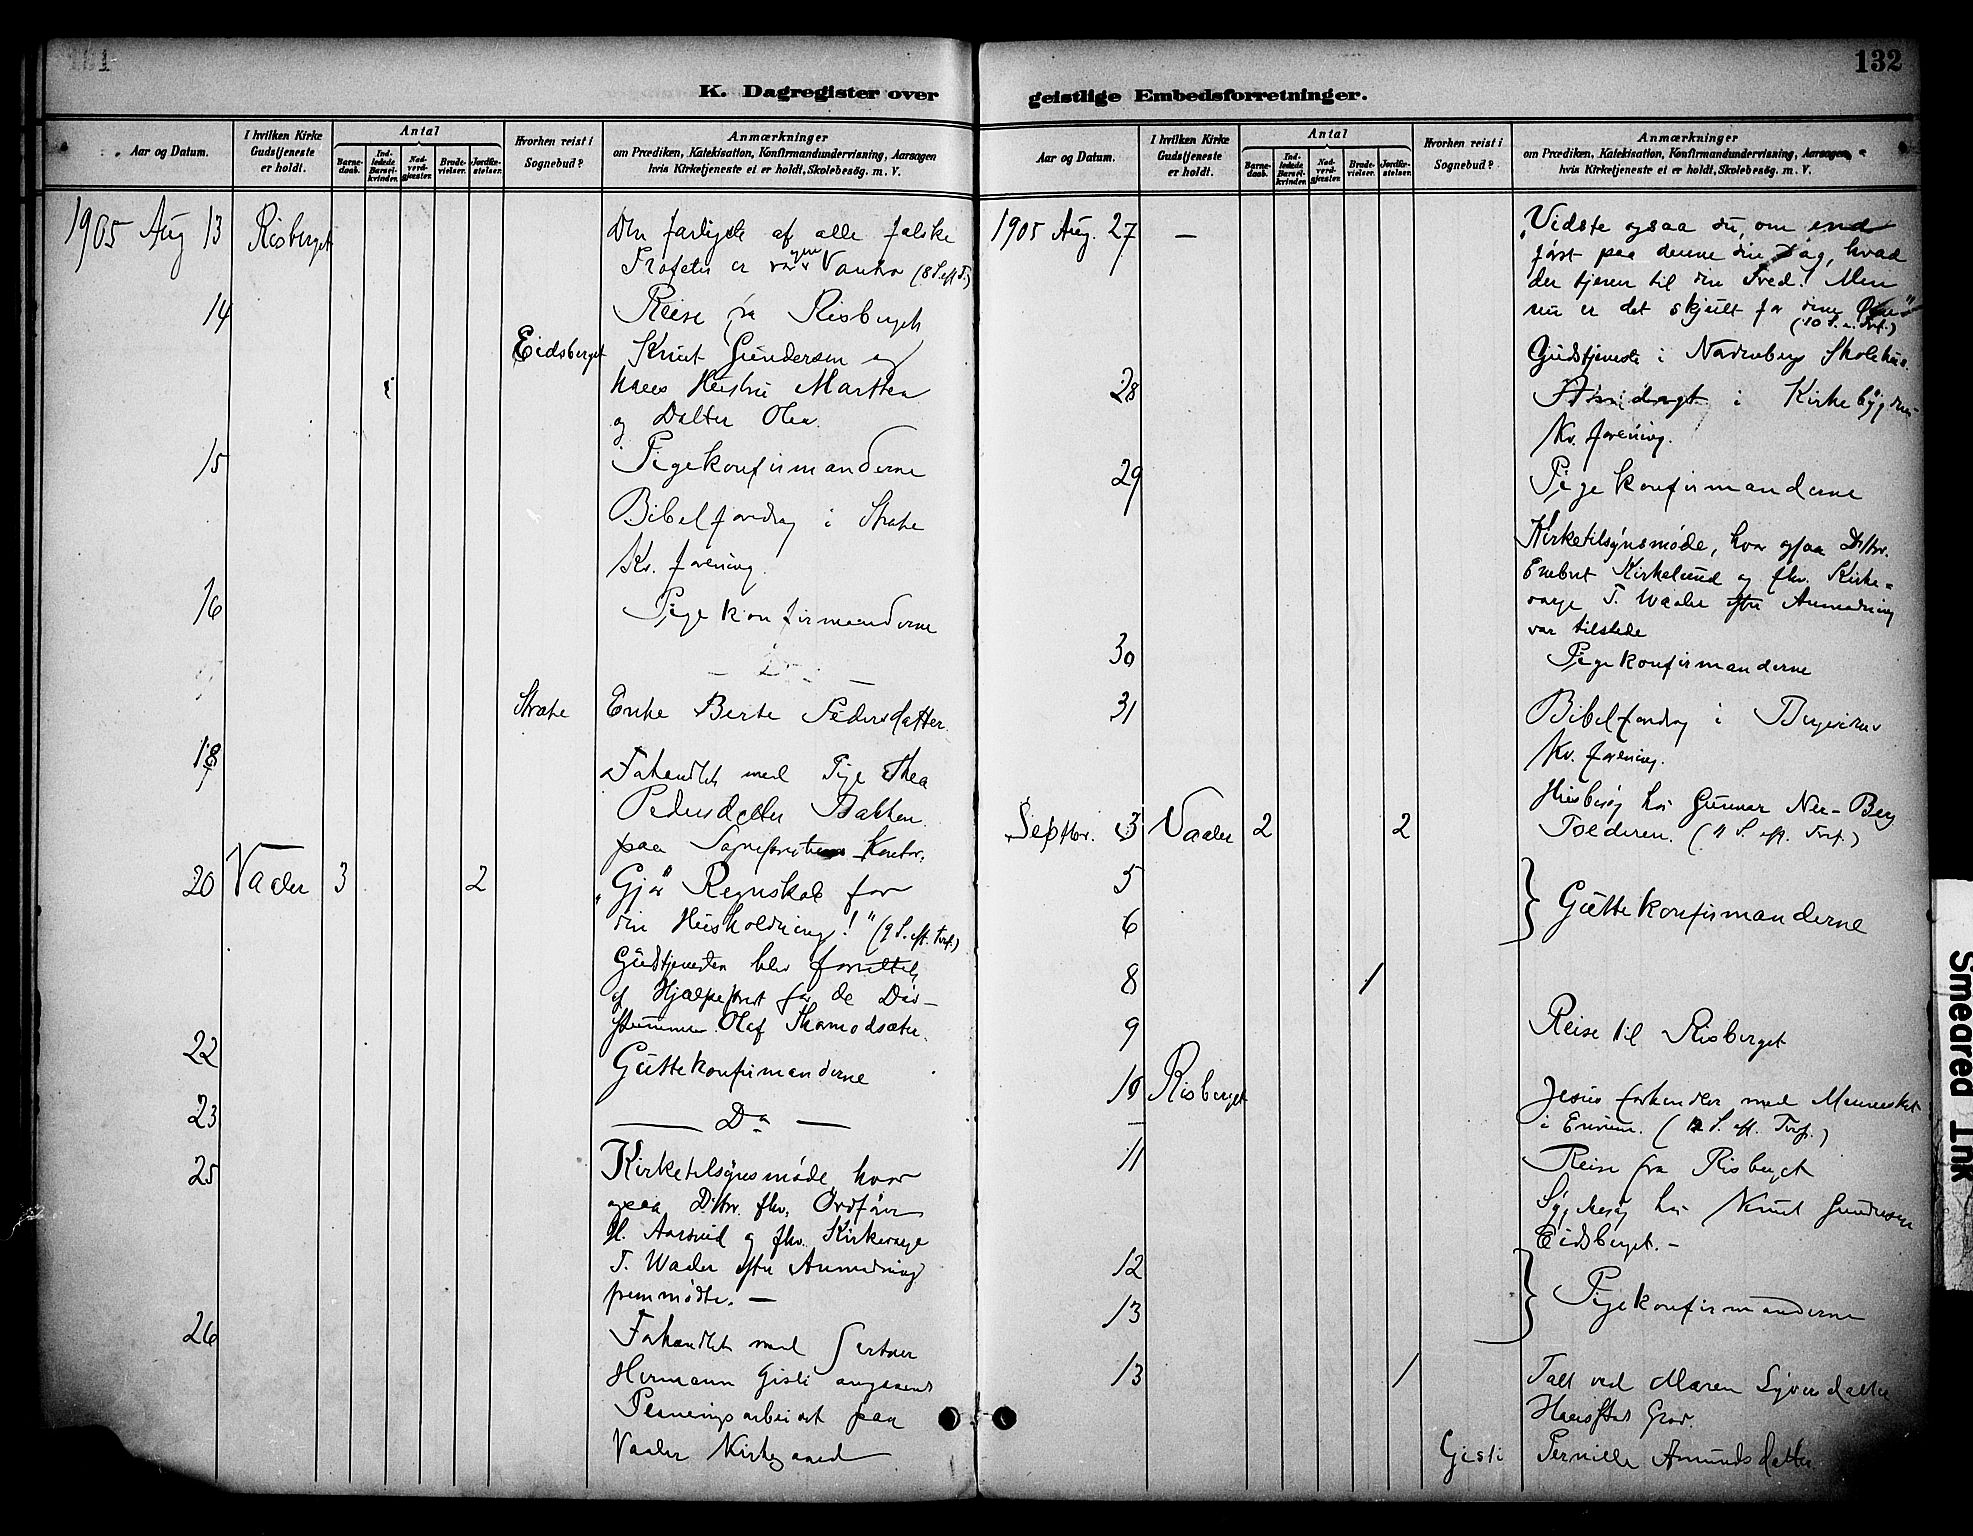 132
K. Dagregister over geistlige Embedsforretninger.
Aar og Datum.
I hvilken Kirke Gudstjeneste er holdt.
Antal
Barnedaab.
Indledede Barselkvinder.
Nadverdgjæster.
Brudevielser.
Jordfæstelser.
Hvorhen reist i Sognebud?
Anmærkninger
om Prædiken, Katekisation, Konfirmandundervisning, Aarsagen
hvis Kirketjeneste ei er holdt, Skolebesøg. m. V.
1905 Aug 13 Risberget
Den farligste af alle falske
Profeter er vor egen Vantro (8 S. eft. Tr.)
14 Reise fra Risberget
Eidsberget Knut Gundersen og
hans Hustru Marthea
og Datter Olea.
15 Pigekonfirmanderne
Bibelforedrag i Strate
Kv. forening.
16 Pigekonfirmanderne
Strate Enke Berte Pedersdatter.
18 Forhandlet med Pige Thea
Pedersdatter Bakken
paa Kontor.
20 Vaaler 3 2 "Gjør Regnskab for
din Husholdning!" (9 S. eft. Tref.)
Gudstjenesten blev forrettet
af Hjælpeprest for de Døv-
stumme Olaf
22 Guttekonfirmanderne
23 — Do —
25 Kirketilsynsmøde, hvor
ogsaa D'Hrr. fhv. Ordfører
H. og fhv. Kirkeværge
T. Waaler efter Anmodning
fremmødte. —
26 Forhandlet med Gartner
Hermann Gisti angaaende
Planeringsarbeidet paa
Vaaler Kirkegaard
Aar og Datum.
I hvilken Kirke Gudstjeneste er holdt.
Antal
Barnedaab.
Indledede Barselkvinder.
Nadverdgjæster.
Brudevielser.
Jordfæstelser.
Hvorhen reist i Sognebud?
Anmærkninger
om Prædiken, Katekisation, Konfirmandundervisning, Aarsagen
hvis Kirketjeneste ei er holdt, Skolebesøg. m. V.
1905 Aug. 27 —
"Vidste ogsaa du, om end
først paa denne din Dag, hvad
der tjener til din Fred! Men
nu er det skjult for dine Øine"
(10 S. e. Tref.)
Gudstjeneste i Skolehus.
28 i Kirkebygdens
Kv. forening.
29 Pigekonfirmanderne
Kirketilsynsmøde, hvor ogsaa D'Hrr.
Enebret Kirkelund og fhv. Kirke-
værge T. Waaler efter Anmodning
var tilstede
30 Pigekonfirmanderne
31 Bibelforedrag i
Kv. forening.
Husbesøg hos Gunnar Ner-Berg
Septbr. 3 Vaaler 2 2 (11 S. eft. Tref.)
5
6 Guttekonfirmanderne
8 1
9 Reise til Risberget
10 Risberget Jesus forhandler med Mennesket
i Enrum. (12 S. eft. Tref.)
11 Reise fra Risberget
Sygebesøg hos Knut Gundersen
Eidsberget. —
12
13 Pigekonfirmanderne
13 1 Talt ved Maren Syversdatter
Grav.
Gisti Pernille Amundsdatter.
Smeared Ink